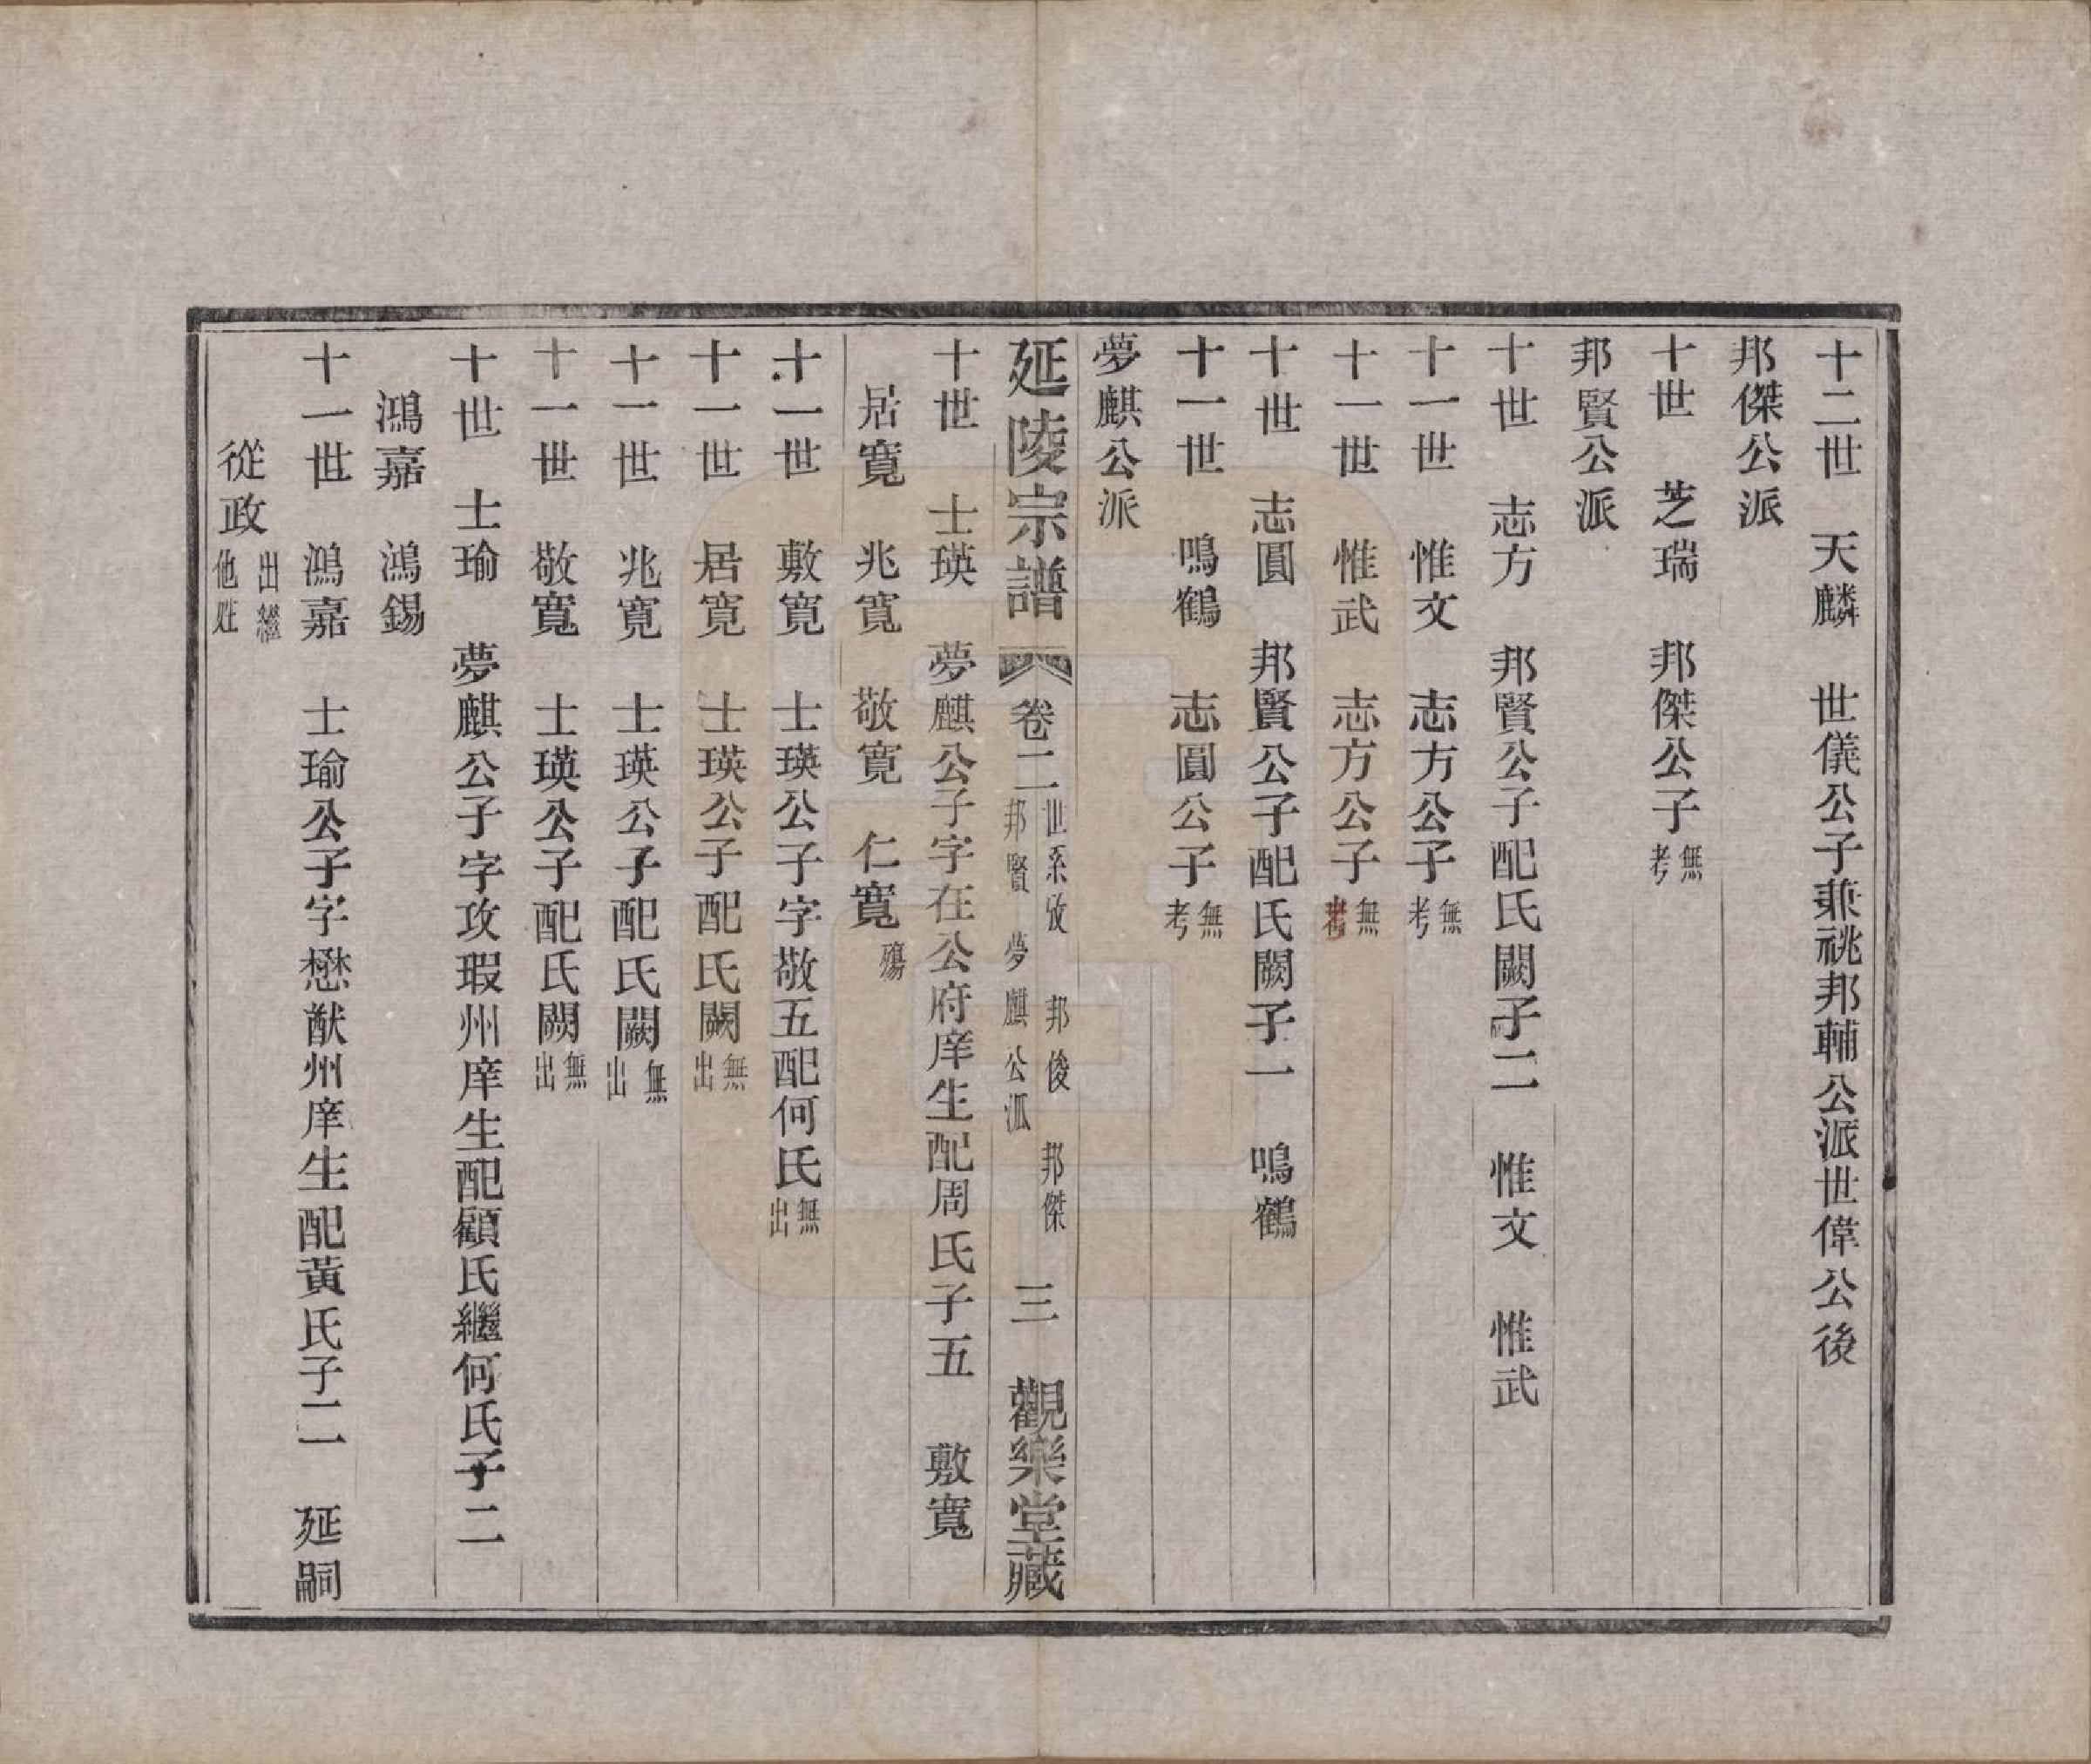 十二世　天麟　世儀公子兼祧邦輔公派世偉公後
邦傑公派
十世　芝瑞　邦傑公子無考
邦賢公派
十世　志方　邦賢公子配氏闕子二　惟文　惟武
十一世　惟文　志方公子無考
十一世　惟武　志方公子無考
十世　志圓　邦賢公子配氏闕子一　鳴鶴
十一世　鳴鶴　志圓公子無考
夢麒公派
延陵宗譜　卷二　世系攷　邦俊　邦傑　邦賢　夢麒公派　三　觀樂堂藏
十世　士瑛　夢麒公子字在公府庠生配周氏子五　敷寬
居寬　兆寬　敬寬　仁寬殤
十一世　敷寬　士瑛公子字敬五配何氏無出
十一世　居寬　士瑛公子配氏闕無出
十一世　兆寬　士瑛公子配氏闕無出
十一世　敬寬　士瑛公子配氏闕無出
十世　士瑜　夢麒公子字攻瑕州庠生配顧氏繼何氏子二
鴻嘉　鴻錫
十一世　鴻嘉　士瑜公子字懋猷州庠生配黃氏子二　延嗣
從政出繼他姓